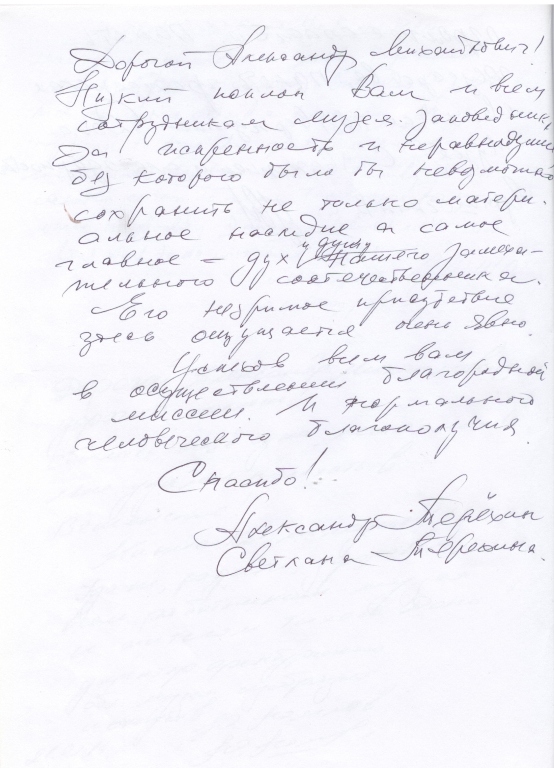 Дорогой Александр Михайлович!
Низкий поклон Вам и всем
сотрудникам музея-заповедника
За искренность и неравнодушие
без которого было бы невозможно
сохранить не только матери-
альное наследие а самое
главное – дух и душу нашего замеча-
тельного соотечественника.
Его незримое присутствие
здесь ощущается очень явно.
Успехов всем вам
в осуществлении благородной
миссии. И нормального
человеческого благополучия
Спасибо!..
Александр Терёхин
Светлана Терехина.